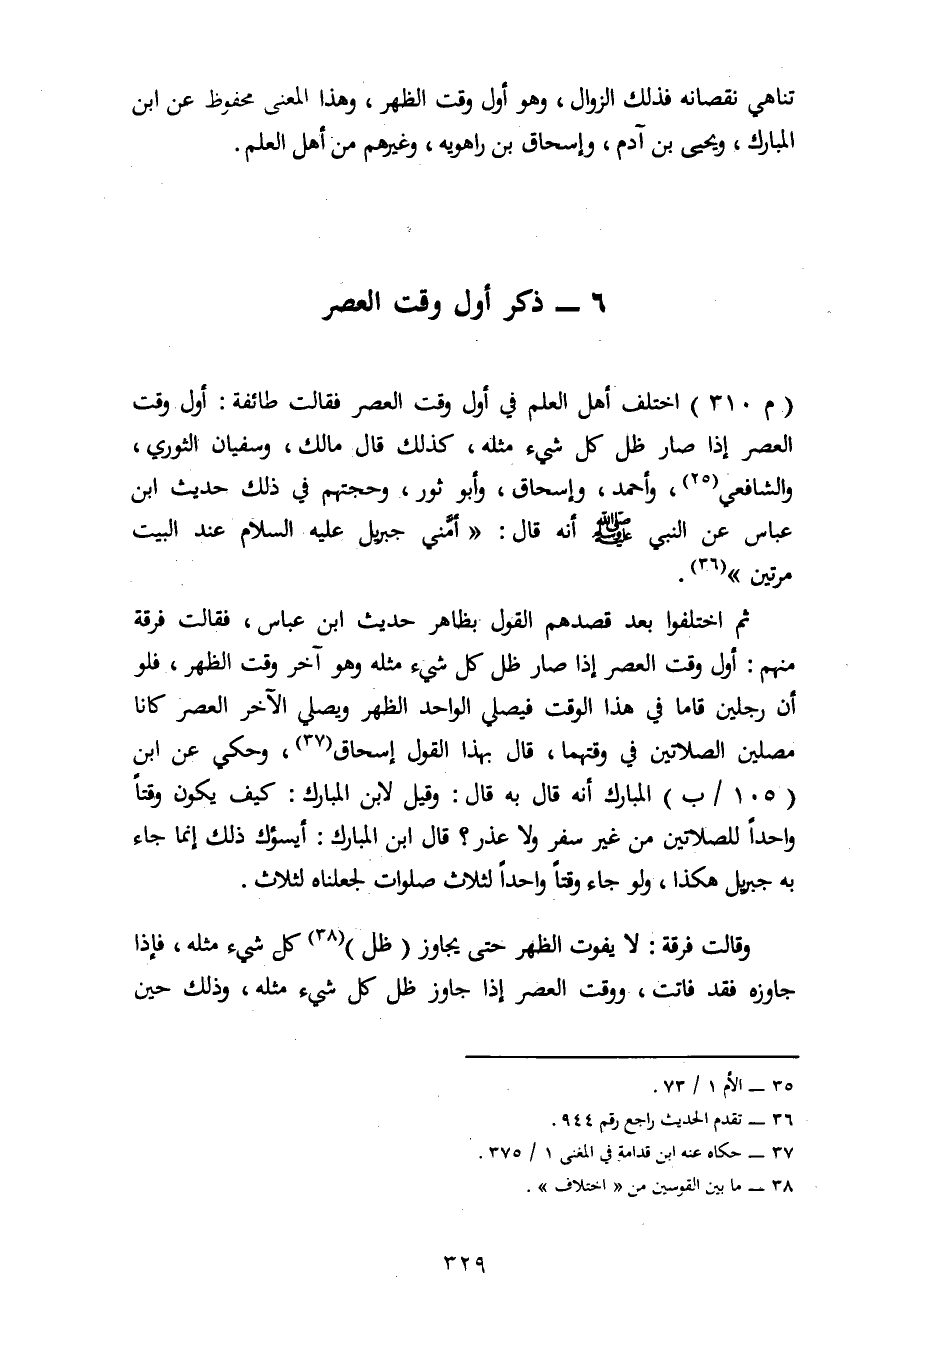 تناهي نقصانه فذلك الزوال ، وهو أول وقت الظهر ، وهذا المعنى محفوظ عن ابن
المبارك ، ويحيى بن آدم ، وإسحاق بن راهويه ، وغيرهم من أهل العلم .
٦ ــ ذكر أول وقت العصر
( م ٣١٠ ) اختلف أهل العلم في أول وقت العصر فقالت طائفة : أول وقت
العصر إذا صار ظل كل شيء مثله ، كذلك قال مالك ، وسفيان الثوري ،
والشافعي(٢٥) ، وأحمد ، وإسحاق ، وأبو ثور ، وحجتهم في ذلك حديث ابن
عباس عن النبي ﷺ أنه قال : « أمَّني جبريل عليه السلام عند البيت
مرتين »(٣٦) .
ثم اختلفوا بعد قصدهم القول بظاهر حديث ابن عباس ، فقالت فرقة
منهم : أول وقت العصر إذا صار ظل كل شيء مثله وهو آخر وقت الظهر ، فلو
أن رجلين قاما في هذا الوقت فيصلي الواحد الظهر ويصلي الآخر العصر كانا
مصلين الصلاتين في وقتهما ، قال بهذا القول إسحاق(٣٧) ، وحكي عن ابن
( ١٠٥ / ب ) المبارك أنه قال به قال : وقيل لابن المبارك : كيف يكون وقتاً
واحداً للصلاتين من غير سفر ولا عذر ؟ قال ابن المبارك : أيسؤك ذلك إنما جاء
به جبريل هكذا ، ولو جاء وقتاً واحداً لثلاث صلوات لجعلناه لثلاث .
وقالت فرقة : لا يفوت الظهر حتى يجاوز ( ظل )(٣٨) كل شيء مثله ، فإذا
جاوزه فقد فاتت ، ووقت العصر إذا جاوز ظل كل شيء مثله ، وذلك حين
٣٥ ــ الأم ١ / ٧٣ .
٣٦ ــ تقدم الحديث راجع رقم ٩٤٤ .
٣٧ ــ حكاه عنه ابن قدامة في المغنى ١ / ٣٧٥ .
٣٨ ــ ما بين القوسين من « اختلاف » .
٣٢٩